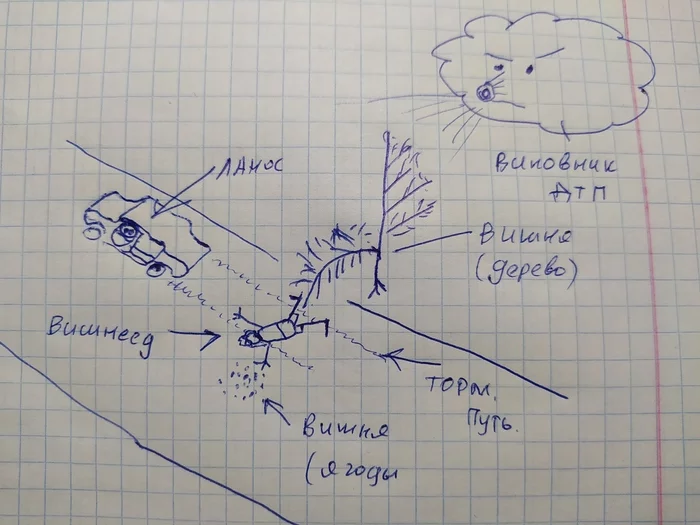 Виновник
ДТП
Ланос
Вишня
(дерево)
Вишнеед
торм.
Путь.
Вишня
(ягоды